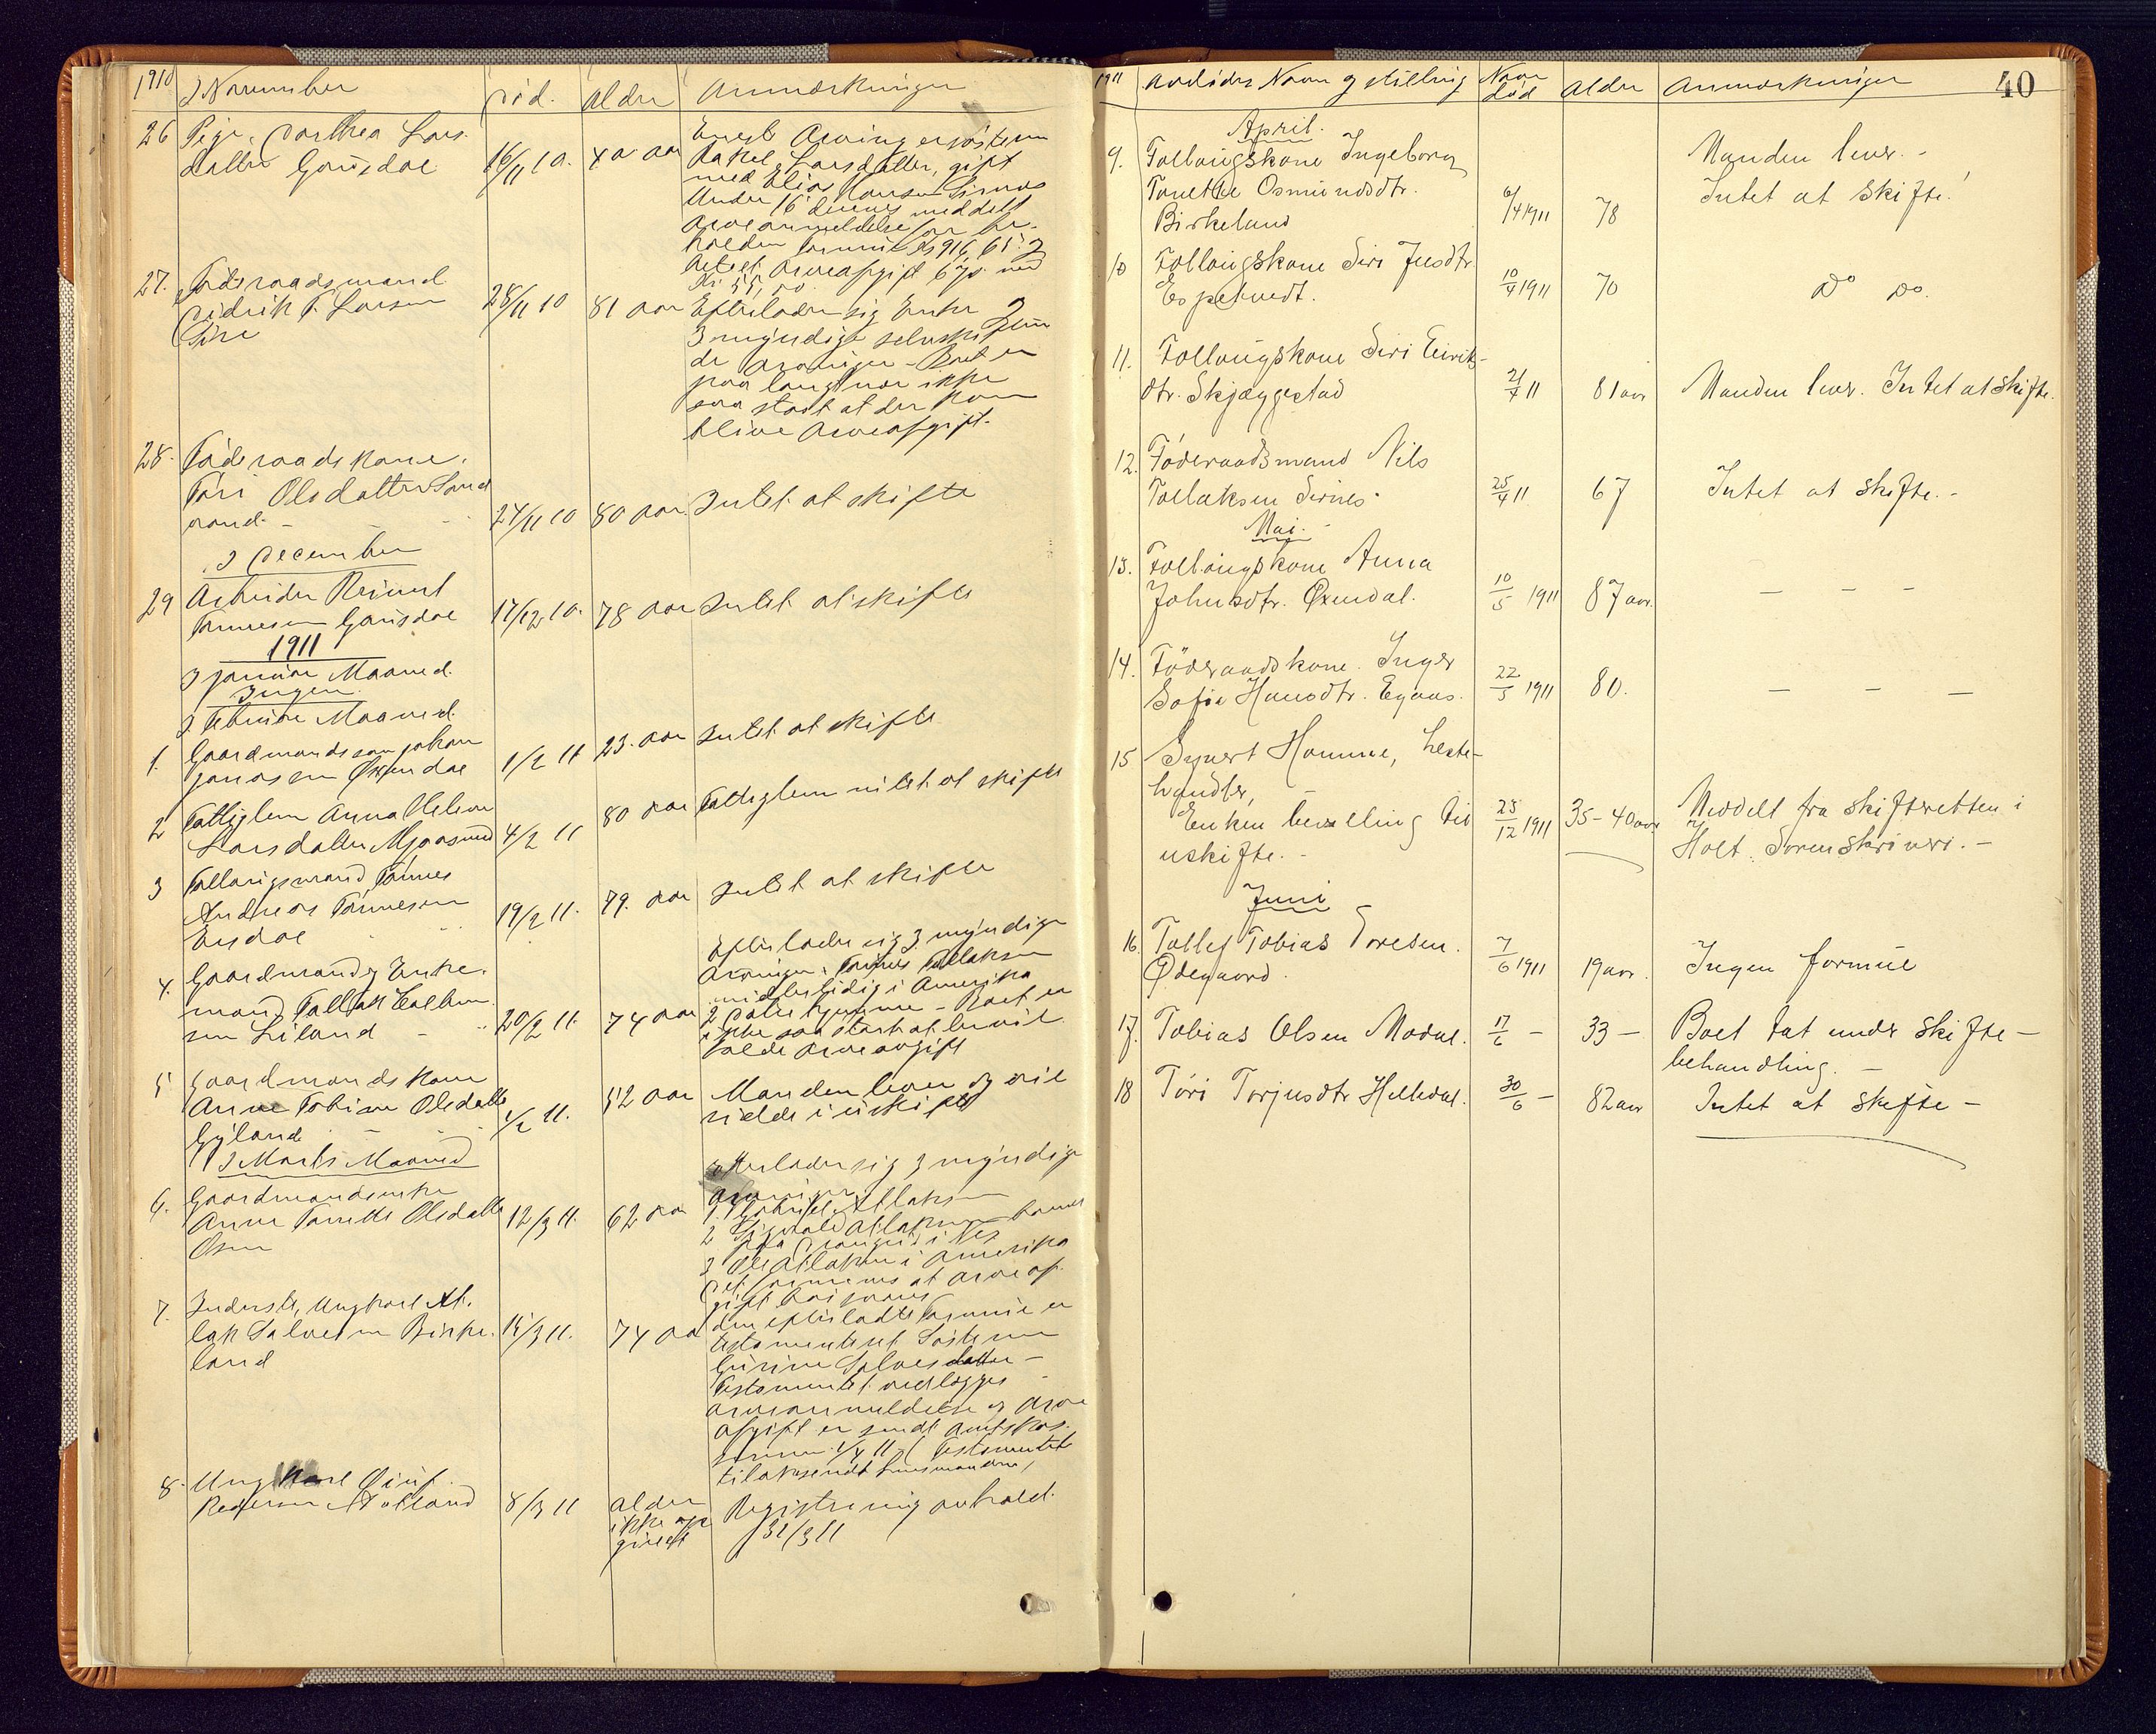 1910 I November
Död. Alder Anmærkninger
26 Pige Dorthea Lars-
datter Gausdal 16/11 10. 40 aar
Eneste Arving er søsteren
Rakel Larsdatter, gift
med Elias Hansen Sirnes
Under 16 dennes meddelt
Arveanmeldelse for be-
holden formue Kr 916,65.
Arveafgift 6 %
Kr 55,00.
27. Föderaadsmand
Didrik T. Larsen
Sire 28/11 10 81 aar
Efterlader sig Enke
3 myndige selvskiften-
de Arvinger - Boet er
paa langt nær ikke
saa stort at der kan
blive Arveafgift.
28. Föderaadskone.
Töri Olsdatter Sand-
rand. - 24/11 10 80 aar Intet at skifte
I December
29 Arbeider Reinert
Tønnesen Gausdal 17/12 10. 78 aar Intet at skifte
1911
I januar Maaned.
Ingen
I Februar Maaned.
1. Gaardmandssøn johan
jonassen Øxendal 1/2 11 23. aar Intet at skifte
2 Fattiglem Anna Helene
Larsdatter Mjaasund 4/2 11 80 aar Fattiglem intet at skifte
3 Follaugsmand Tønnes
Andreas Tønnesen
Eisdal 19/2 11. 79. aar Intet at skifte
4. Gaardmand og Enke-
mand Tallak
Liland - 20/2 11. 74 aar
Efterlader sig 3 myndige
Arvinger. Tønnes Tallaksen
midlertidig i Amerika
2 Døtre hjemme - Boet er
ikke saa stort at der vil
falde Arveavgift
5 Gaardmandskone
Anne Tobine Olsdatter
Gyland 1/2 11. 52 aar Manden lever og vil
sidde i uskifte
I Marts Maaned
6. Gaardmandsenke
Anne Tonette Olsdatter
Osen 12/3 11. 62 aar
Efterlader sig 3 myndige
Arvinger
1. Gabriel Atlaksen
2 Sigvald Atlaksen
i Nes
3 Ole Atlaksen i Amerika
Det formenes at Arveaf-
gift
7. Inderst, Ungkarl At-
lak Salvesen Birke-
land 15/3 11. 74 aar
den efterladte Formue er
testamenteret Søsteren
Gurine Salvesdatter -
Testamentet vedlægges
Arveanmeldelse og Arve
afgift er sendt Amtskas-
serer 1/4 11 Testamentet
tilbakesendt Lensmanden,
8. Ungkarl Oluf
Pedersen Stolland 8/3 11 Alder
ikke op-
givet Registrering avhold.
31/3 11
1911 Avdødes Navn og stilling Naar
død Alder Anmærkninger 40
April.
9. Follaugskone Ingeborg
Tonette Osmundsdtr.
Birkeland 6/4 1911 78 Manden lever. -
Intet at skifte.
10 Follaugskone Siri Jensdtr.
Espetvedt. 10/4 1911 70 Do Do.
11. Follaugskone Siri Eirik-
dtr. Skjæggestad 21/4 11 81 aar Manden lever. Intet at skifte.
12. Föderaadsmand Nils
Tollaksen Sirnes. 25/4 11 67 Intet at skifte. -
Mai.
13. Follaugskone Anna
Johnsdtr. Øxendal. 10/5 1911 87 aar. - - -
14. Föderaadskone. Inger
Sofie Hansdtr. Egaas. 22/5 1911 80. - - -
15 Syvert Homme, heste-
handler,
Enken bevilling til
uskifte. - 23/12 1911 35-40 aar Meddelt fra skifteretten i
Holt Sorenskriveri. -
Juni
16. Tollef Tobias Toresen.
Ødegaard. 7/6 1911 19 aar. Ingen formue
17. Tobias Olsen Modal. 17/6 - 33 - Boet tat under skifte-
behandling. -
18 Töri Torjusdtr Helledal. 30/6 - 82 aar Intet at skifte -